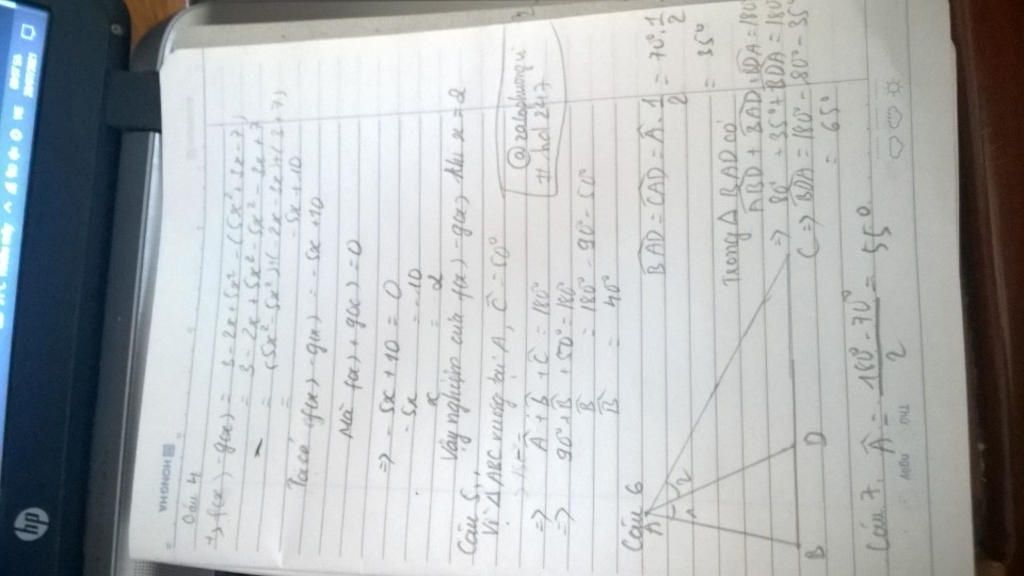 hp
HONGHA
Câu 4
f(x) - g(x) = 3 - 2x + 5x² - (5x² + 3x - 7)
= 3 - 2x + 5x² - 5x² - 3x + 7
= (5x² - 5x²) + (-2x - 3x) + (3+7)
= -5x + 10
Ta có f(x) - g(x) = -5x + 10
Mà f(x) + g(x) = 0
=> -5x + 10 = 0
-5x = -10
x = 2
Vậy nghiệm của f(x) - g(x) khi x = 2
Câu 5,
Vì Δ ABC vuông tại A, Ĉ = 50°
=> Â + B̂ + Ĉ = 180°
=> 90° + B̂ + 50° = 180°
B̂ = 180° - 90° - 50°
B̂ = 40°
Câu 6
A
1 2
B D C
BAD = CAD = Â . 1/2 = 70° . 1/2
= 35°
Trong Δ BAD có
ABD + BAD + BDA = 180°
=> 80° + 35° + BDA = 180°
=> BDA = 180° - 80° - 35°
= 65°
Câu 7, Â = 180° - 70° / 2 = 55°
Thứ
Ngày